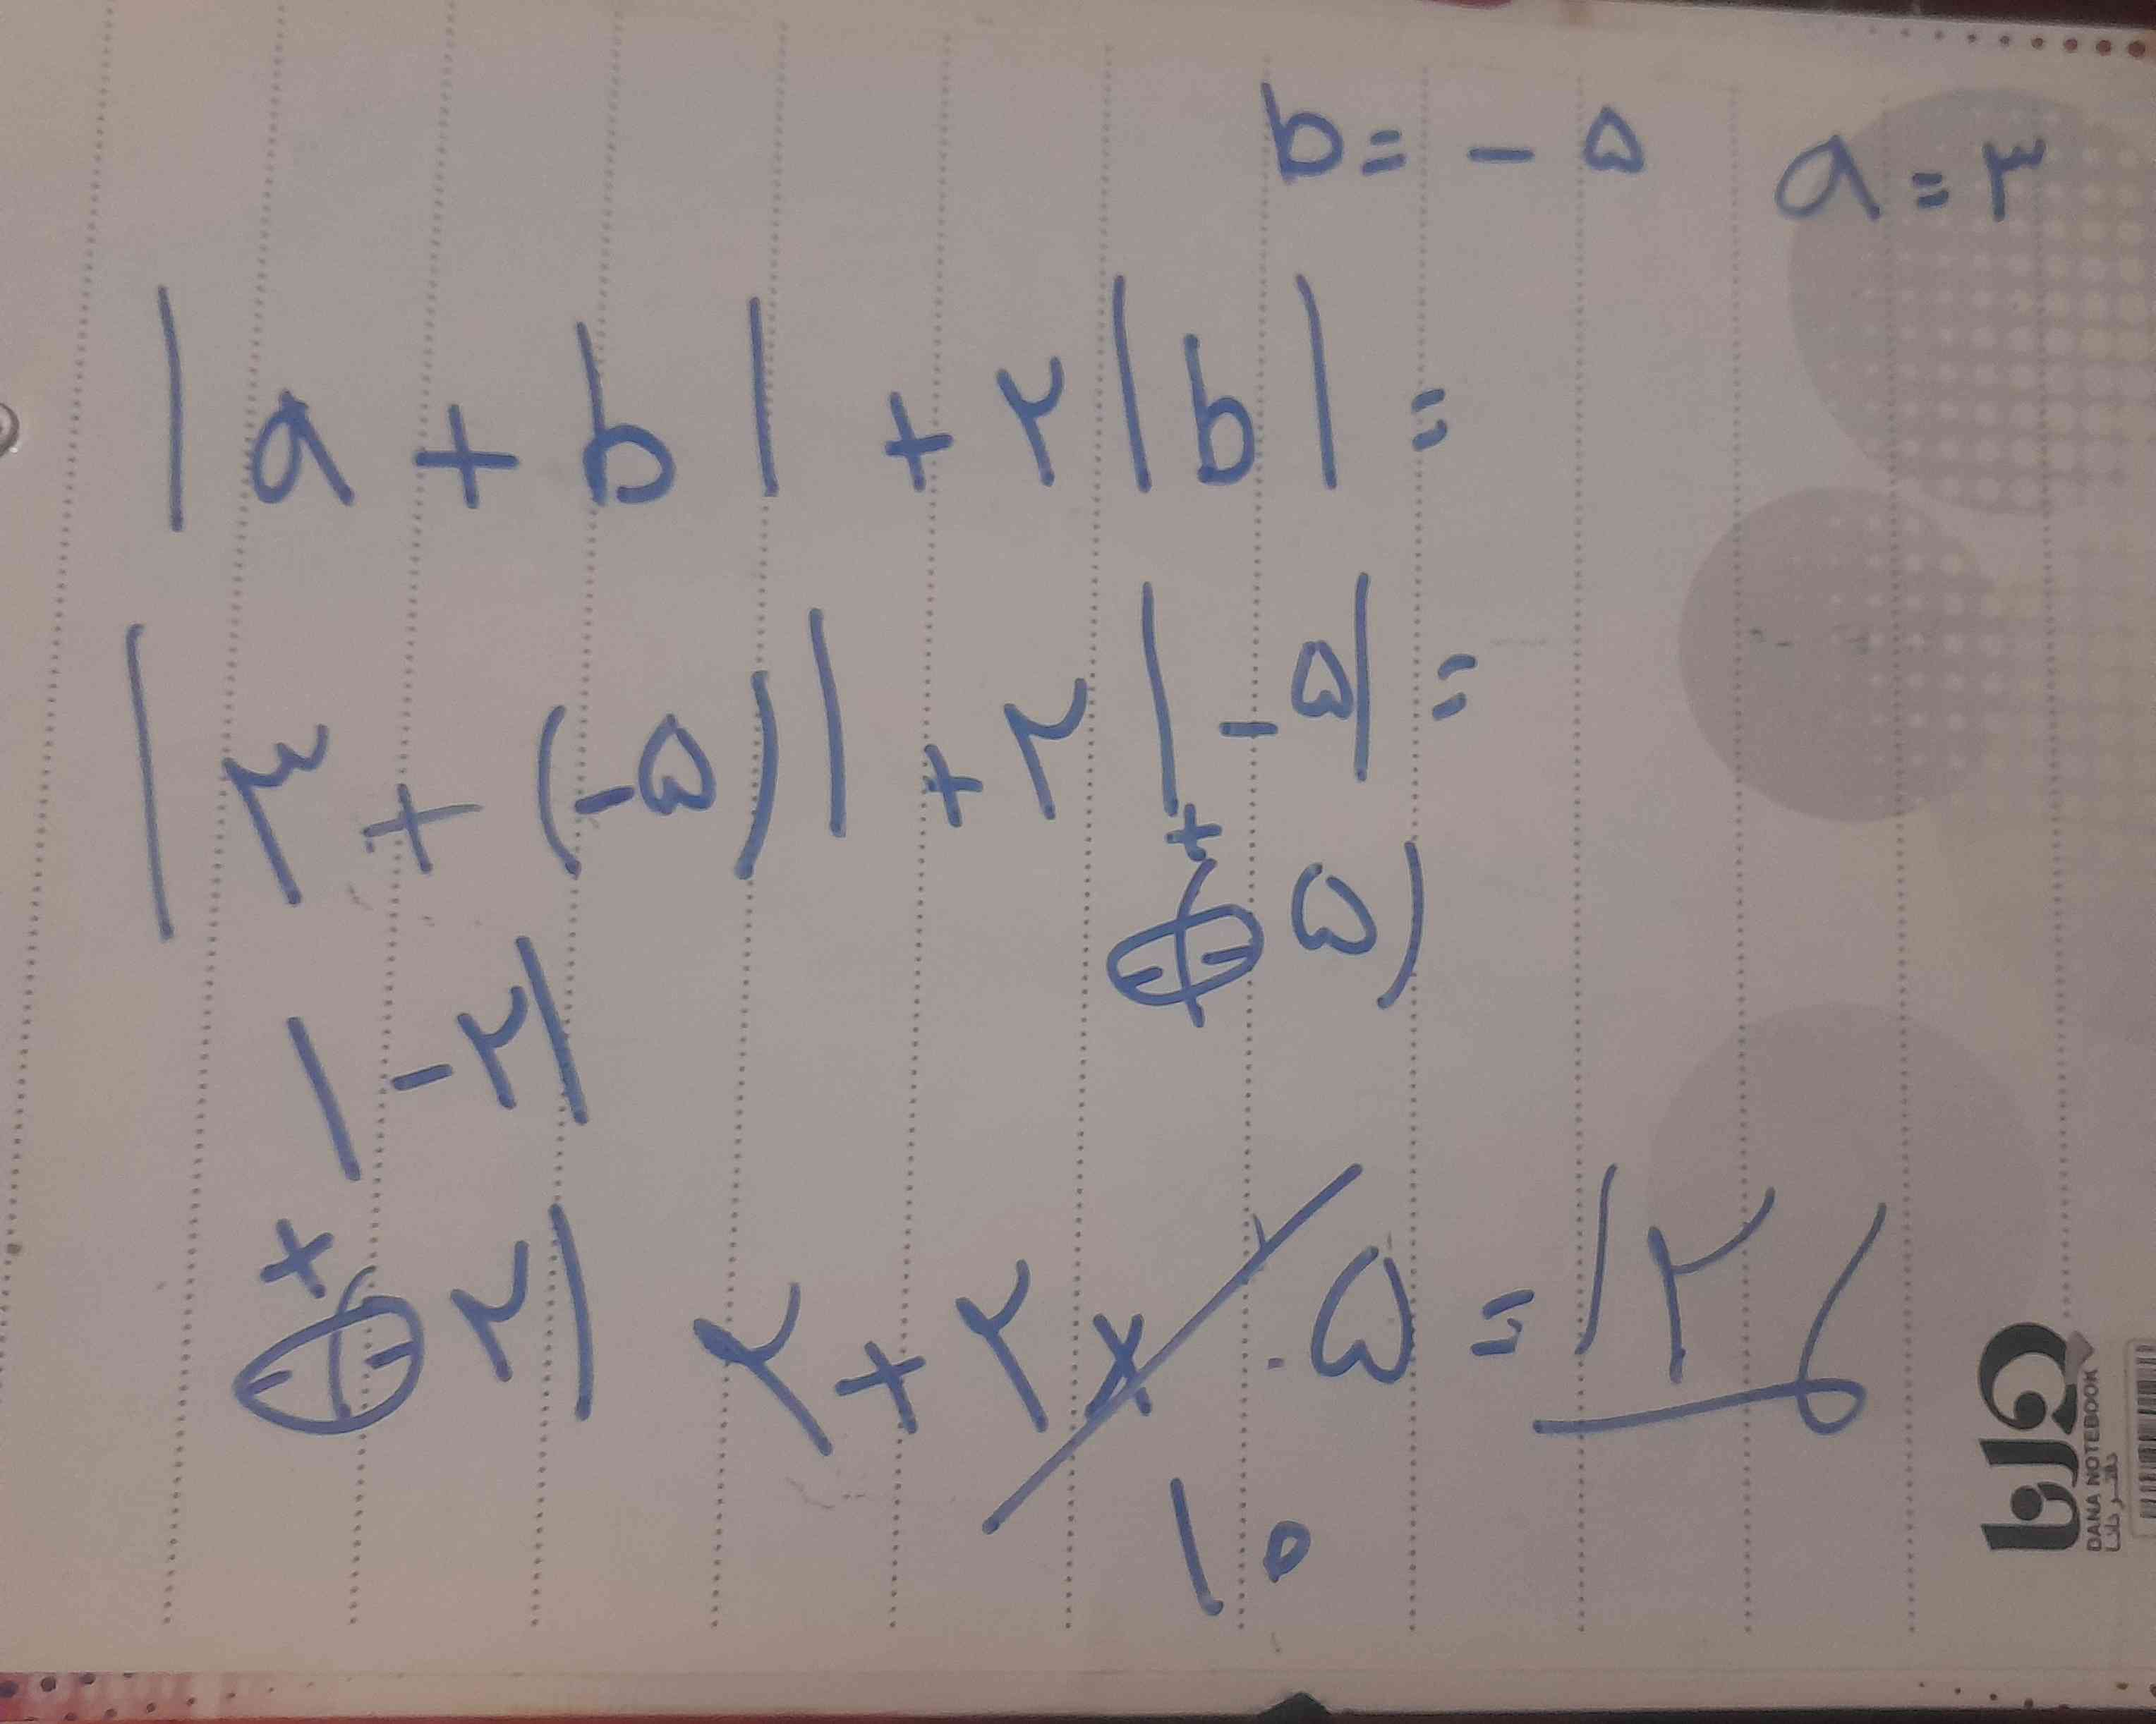 b = - ۵   a = ۳
|a + b| + ۲|b| =
|۳ + (-۵)| + ۲|-۵| =
+
(-۵)
|-۲|
+
-(-۲| ۲ + ۲ × ۵ = ۱۲
۱۰
دانا
DANA NOTEBOOK
دفتر دانا